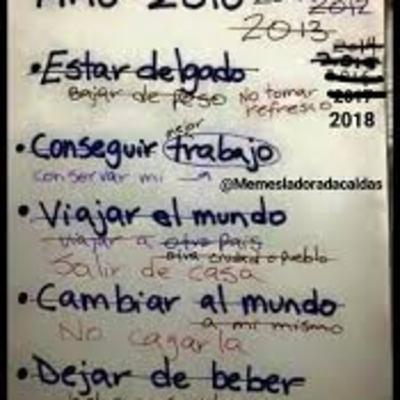 2012
2013
2014
• Estar delgado
bajar de peso No tomar
refresco
2017
2018
mejor
• Conseguir trabajo
conservar mi
@Memesladoradacaldas
• Viajar el mundo
viajar a otro país
otra ciudad o pueblo
Salir de casa
• Cambiar al mundo
a mi mismo
No cagarla
• Dejar de beber